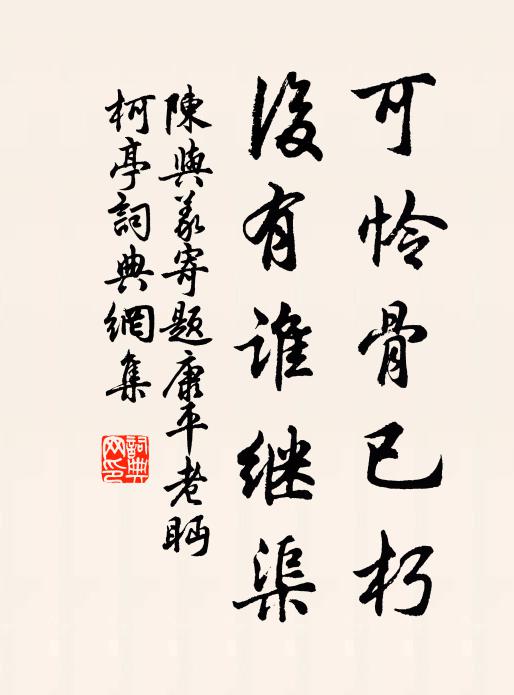 可怜骨已朽
後有谁继渠
陳與義寄題康平老眄
柯亭詞典網集
詞典网印